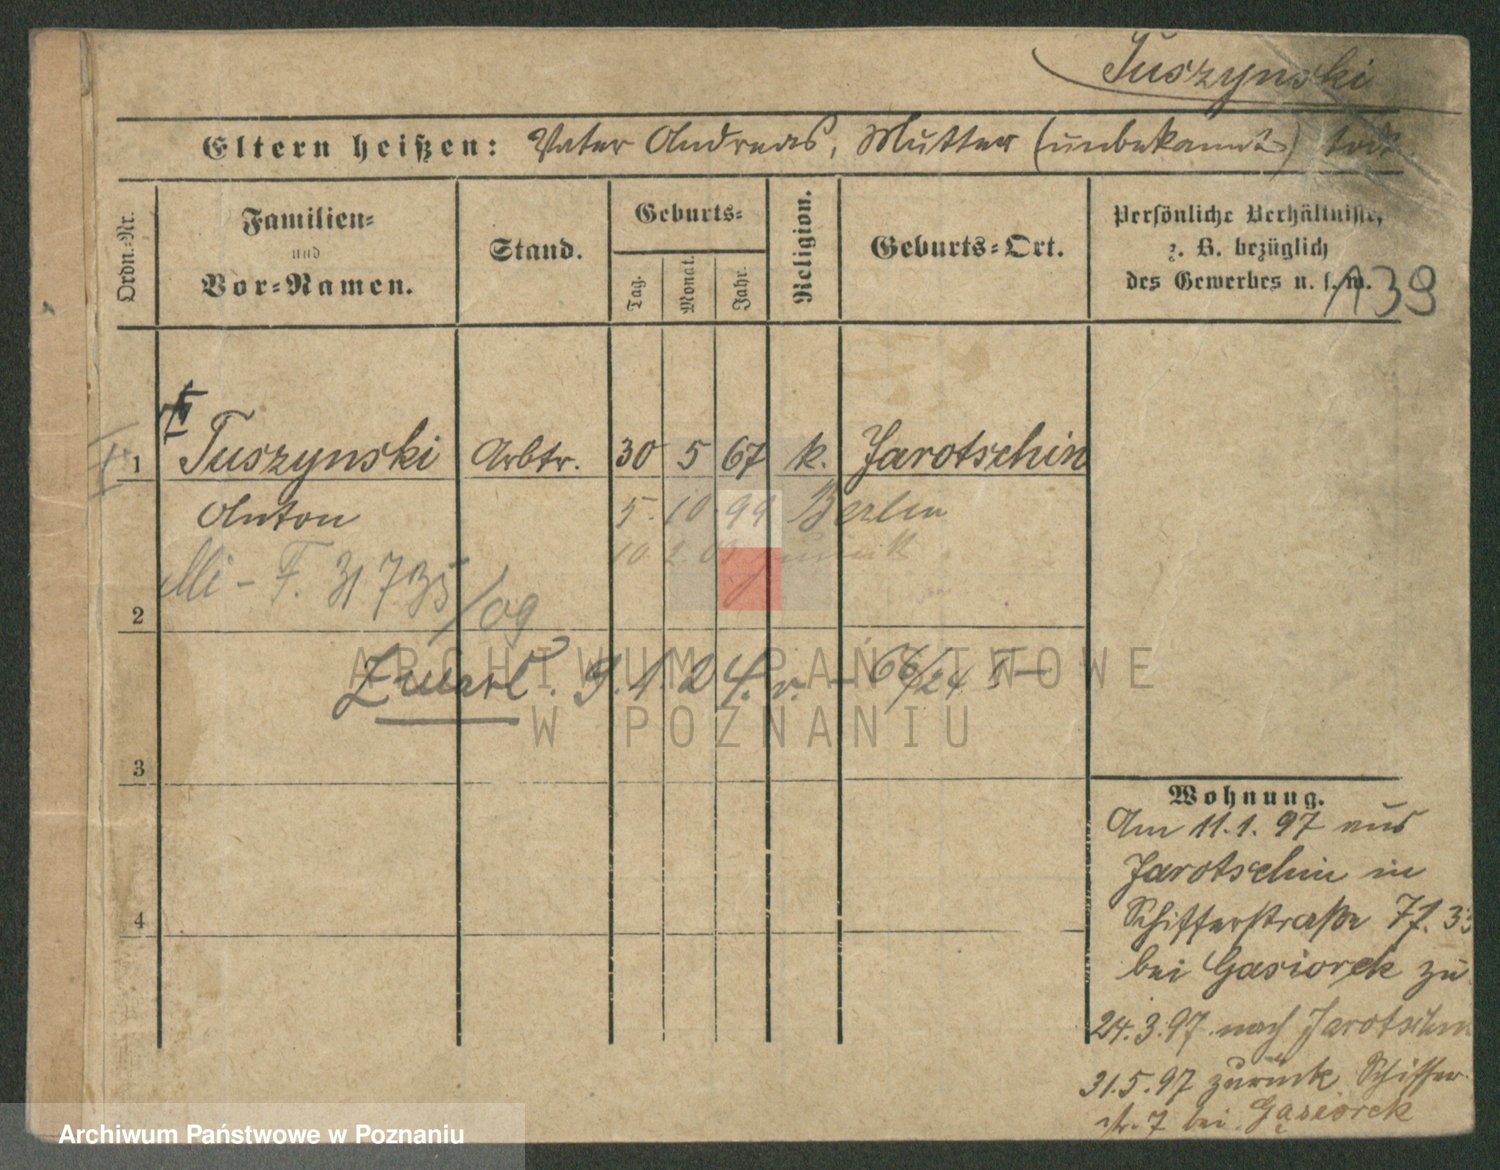 Tuszynski
Eltern heißen: Vater Andreas, Mutter (unbekannt) tot
Ordn.-Nr.
Familien-
und
Vor-Namen.
Stand.
Geburts-
Tag.
Monat.
Jahr.
Religion.
Geburts-Ort.
Persönliche Verhältnisse,
z. B. bezüglich
des Gewerbes u. s. w.
139
1 Tuszynski Arbtr. 30 5 67 k. Jarotschin
Anton 5. 10 99 Berlin
10. 2. 03 zurück
Mi - F. 31 735/09
2
Zmarł. 9.1.24. r. - 66/24
ARCHIWUM PAŃSTWOWE
W POZNANIU
3
4
Wohnung.
Am 11.1.97 aus
Jarotschin in
Schifferstraße 7
bei Gasiorek zu
24.3.97 nach Jarotschin
31.5.97 zurück Schiffer-
str. 7 bei Gąsiorek
Archiwum Państwowe w Poznaniu